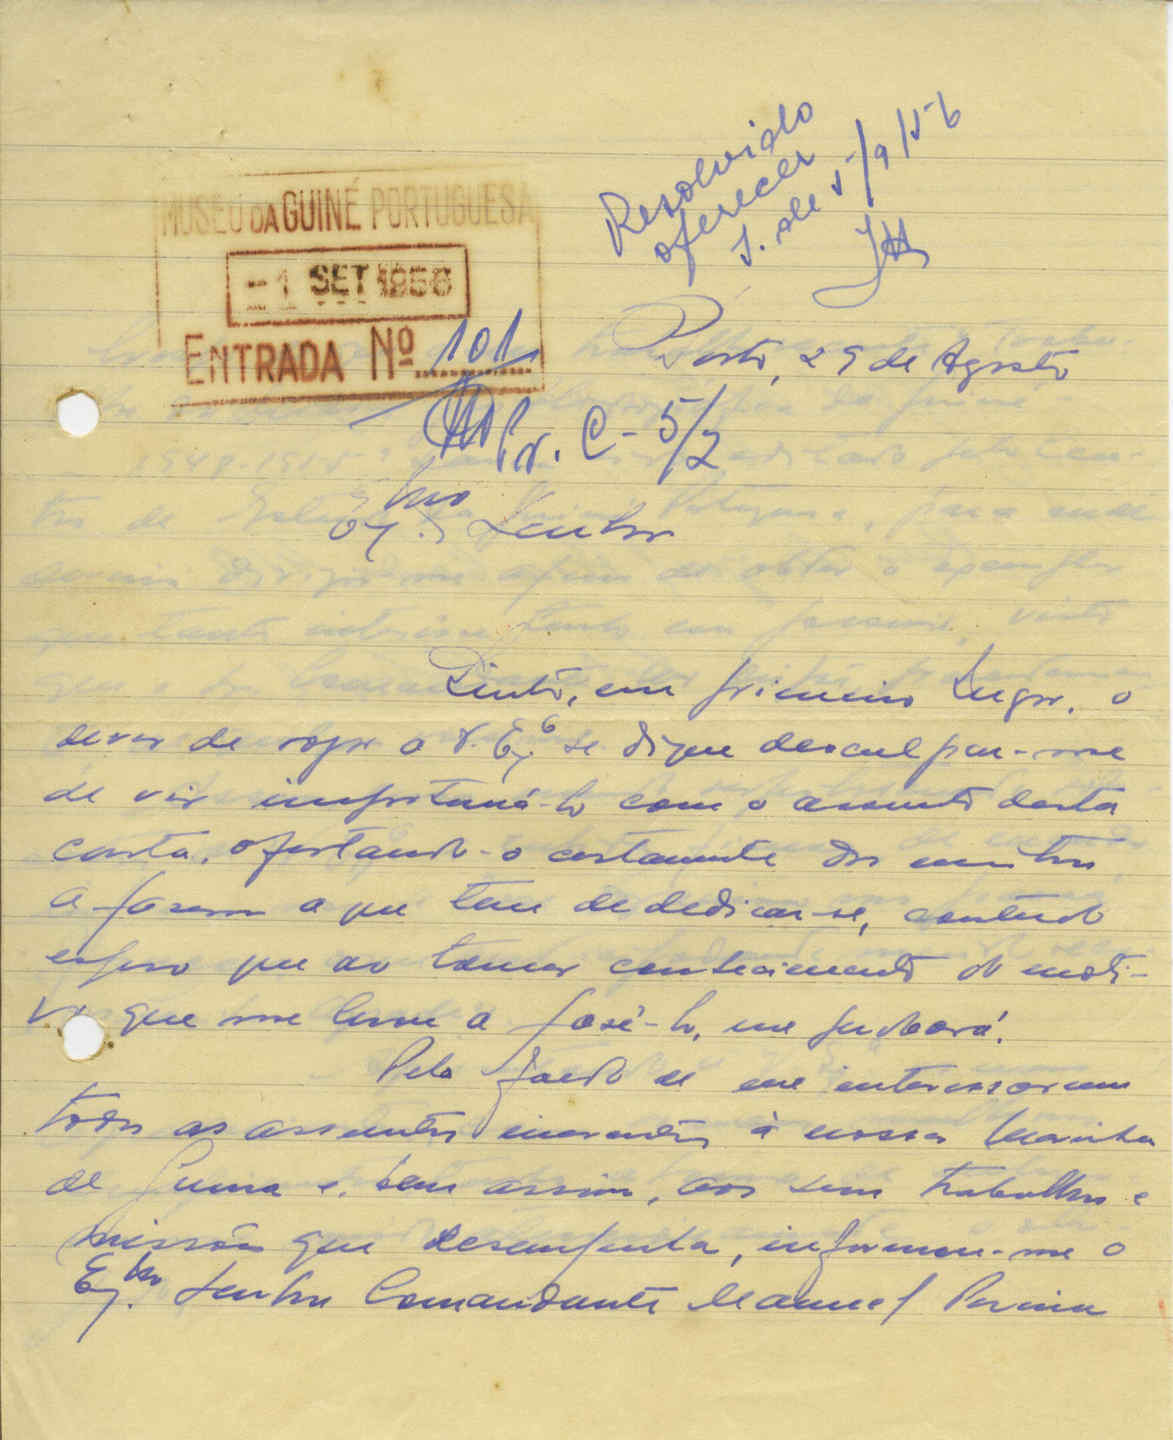 Resolvido
oferecer
S. de 5/9/56
MUSEU DA GUINÉ PORTUGUESA
-1 SET 1956
ENTRADA Nº 101
Porto, 29 de Agosto
Pr. C-5/2
Exmo. Senhor
Sinto, em primeiro lugar, o
dever de rogar a V. Exª se digne desculpar-me
de vir importuná-lo com o assunto desta
carta, afastando-o certamente dos muitos
afazeres a que tem de dedicar-se, contudo
espero que ao tomar conhecimento do moti-
vo que me leva a fazê-lo, me perdoará.
Pelo facto de me interessarem
todos os assuntos inerentes à nossa Marinha
de Guerra e, bem assim, aos seus trabalhos e
missão que desempenha, informou-me o
Exmo. Senhor Comandante Manuel Pereira